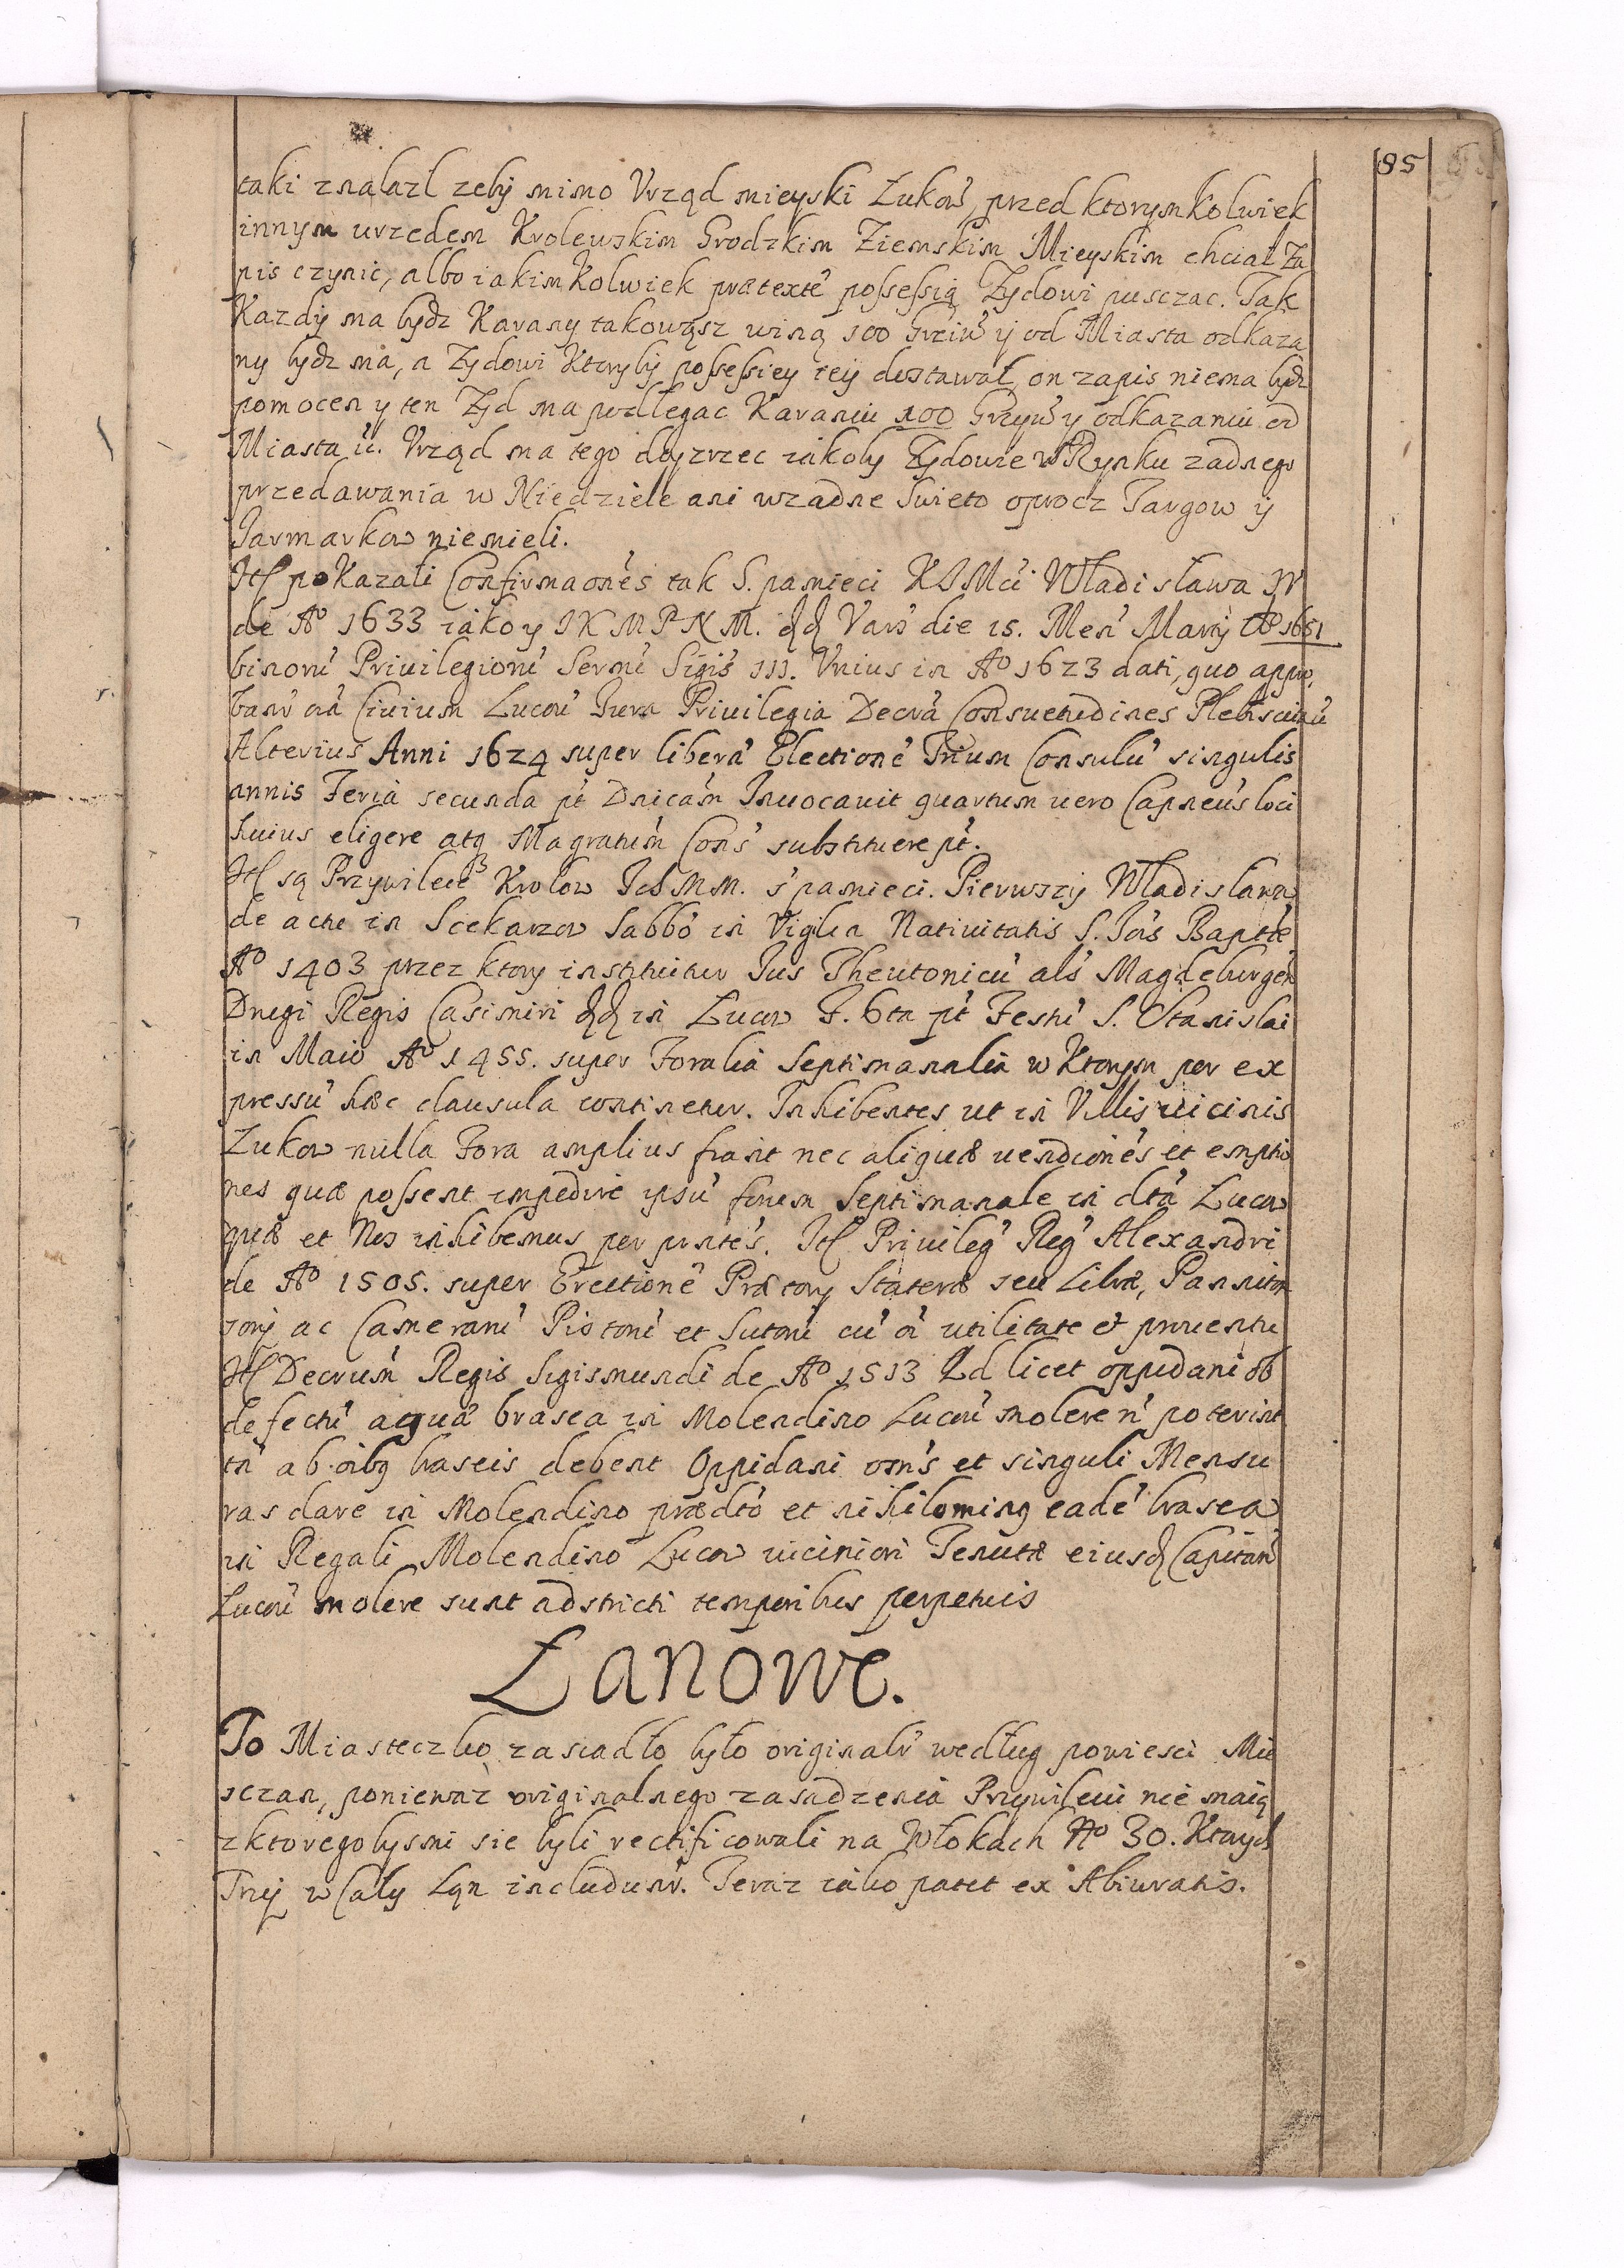 85
taki znalazl zeby mimo Vrząd mieyski Łukow, przed ktorymkolwiek
innym urzedem Krolewskim Grodzkim Ziemskim Mieyskim chciał Za
pis czynic, albo iakimkolwiek prætextē possessią Zydowi pusczac. Tak
Kazdy ma bydz Karany takowąsz winą 100 Grziw̃ y od Miasta odkaza
ny bydz ma, a Zydowi Ktoryby possessiey tey dostawał, on zapis niema bydz
pomocen y ten Zyd ma podlegac Karaniu 100 Grzyw̃ y odkazaniu od
Miasta u. Vrząd ma tego doyzrzec iakoby Zydowie w Rynku zadnego
przedawania w Niedziele ani wzadne Swieto oprocz Targow y
Jarmarkow niemieli.
Itē pokazali Confirmaōnes tak S. pamieci KJMci Władisława IV
de Aº 1633 iako y JKMPNM. dd Vars̃ die 15. Men̄ Marÿ Aº 1651
binorū Privilegiorū Sermī Sigis̃ III. Vnius in Aº 1623 dati, quo appro,
banr̃ oīa Civium Lucoū Jura Privilegia Decr̃a Consuetudines Plebiscitaū
Alterius Anni 1624 super liberā Electionē Trium Consulū singulis
annis Feria secunda pt̃ Dnicām Invocavit quartum vero Capneus̃ loci
huius eligere atq Magratum̃ Cons̃ substituere pt̃.
Itē są Przywileie Krolow Ich MM. s̃ pamieci. Pierwszy Władislawa
de actu in Sciekarzow Sabbō in Vigilia Nativitatis S. Joīs Baptæ
Aº 1403 przez ktory instituitur Jus Theutonicū als̃ Magdeburgen̄
Drugi Regis Casimiri dd in Lucow F. 6ta pt̃ Festū S. Stanislai
in Maio Aº 1455. super Foralia Septimanalia w Ktorym per ex
pressū hæc clausula continetur. Inhibentes ut in Villis vicinis
Łukow nulla Fora amplius fiant nec aliquæ vendcionēs et emptio
nes quæ possent impedire ipsū forum Septimanale in dtā Lucow
quæ et Nos inhibemus per pntēs. Itē Privileg̃ Reg̃ Alexandri
de Aº 1505. super Erectionē Prætory Stateræ seu Libræ, Panniton
sorÿ ac Camerarū Pistorū et Sutorū cū oī utilitate et proventu
Itē Decrum̃ Regis Sigismundi de Aº 1513 Qd licet oppidani ob
defectū aquæ brasea in Molendino Lucoū molere n̄ poterint
tn̄ ab oībq braseis debent Oppidani omn̄s et singuli Mensu
ras dare in Molendino prædtō et nihilominq eadē brasea
in Regali Molendino Lucow viciniori Tenutæ eiusd Capitan̄
Lucoū molere sunt adstricti temporibus perpetuis
Łanowe.
To Miasteczko zasiadło było originalr̃ według powiesci Mie
sczan, poniewaz originalnego zasadzenia Przywileiu nie maią
z ktoregobysmi sie byli rectificowali na Włokach Nº 30. Ktorych
Trzy w Cały Łąn includunr̃. Teraz iako patet ex Abiuratis.